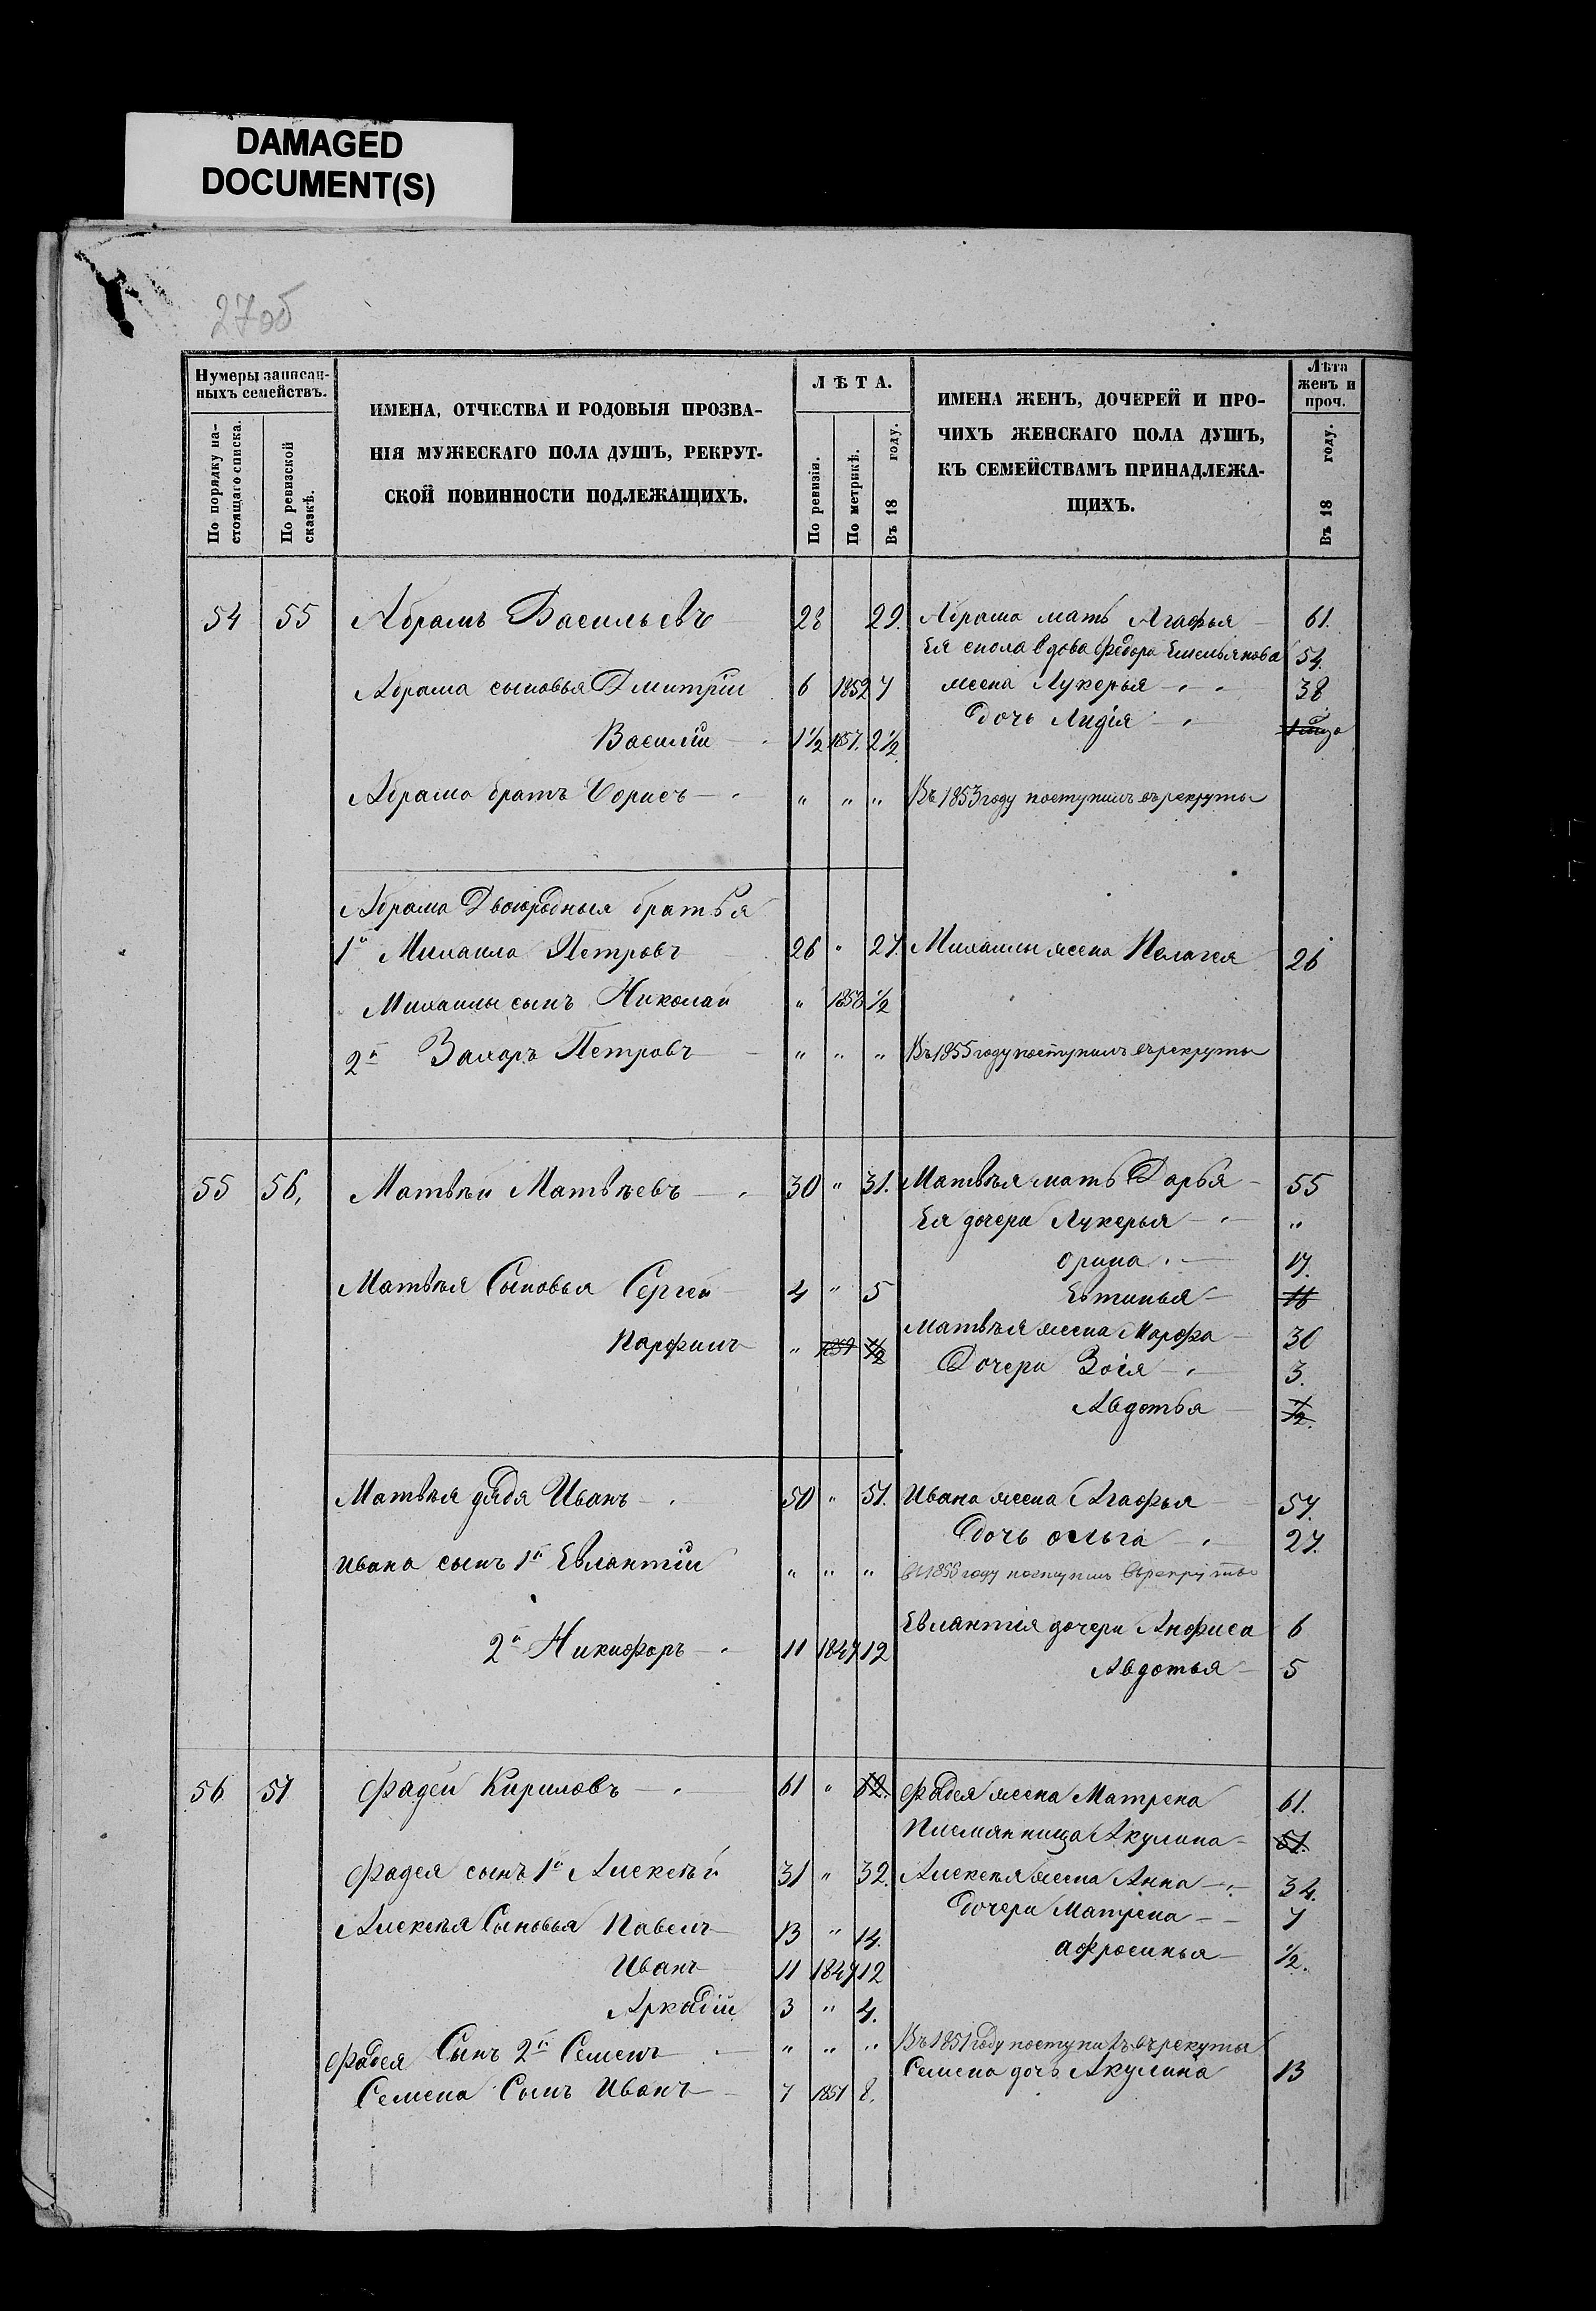 DAMAGED
DOCUMENT(S)
27об
Нумеры записан-
ныхъ семействъ.
По порядку на-
стоящаго списка.
По ревизской
сказкѣ.
ИМЕНА, ОТЧЕСТВА И РОДОВЫЯ ПРОЗВА-
НІЯ МУЖЕСКАГО ПОЛА ДУШЪ, РЕКРУТ-
СКОЙ ПОВИННОСТИ ПОДЛЕЖАЩИХЪ.
ЛѢТА.
По ревизіи.
По метрикѣ.
Въ 18 году.
ИМЕНА ЖЕНЪ, ДОЧЕРЕЙ И ПРО-
ЧИХЪ ЖЕНСКАГО ПОЛА ДУШЪ,
КЪ СЕМЕЙСТВАМЪ ПРИНАДЛЕЖА-
ЩИХЪ.
Лѣта
женъ и
проч.
Въ 18 году.
54 55 Абрамъ Васильевъ 28 29. Абрама мать Агафья 61.
Ея сноха вдова Федора Емельянова 54.
Абрама сыновья Дмитрій 6 1852 7 жена Лукерья 38
дочь Лидія
Василій 1½ 1857. 2½.
Абрама братъ Борисъ " " " Въ 1853 году поступилъ въ рекруты
Абрама Двоюродныя братья
1й Михаила Петровъ 26 " 27. Михаилы жена Пелагея 26
Михаилы сынъ Николай " 1858 ½
2й Захаръ Петровъ " " " Въ 1855 году поступилъ въ рекруты
55 56, Матвѣй Матвѣевъ 30 " 31. Матвѣя мать Дарья 55
Ея дочери Лукерья "
Орина 17.
Матвѣя Сыновья Сергей 4 " 5 Евтинья 16
Парфилъ " 1859 ½ Матвѣя жена Марфа 30
Дочери Зосія 3.
Авдотья ½.
Матвѣя дядя Иванъ 50 " 51. Ивана жена Агафья 57.
Дочь ольга 27.
Ивана сынъ 1й Евлантій " " " въ 1855 году поступилъ въ рекруты
Евлантія дочери Анфиса 6
2й Никифоръ 11 1847 12
Авдотья 5
56 57 Фадей Кириловъ 61 " 62. Фадея жена Матрена 61.
Племянница Акулина 51.
Фадея сынъ 1й Алексѣй 31 " 32. Алексѣя жена Анна 34.
Дочери Матрена 7
Алексѣя Сыновья Павелъ 13 " 14.
Афросинья ½.
Иванъ 11 1847 12
Аркадій 3 " 4.
Фадея Сынъ 2й Семенъ " " " Въ 1851 году поступилъ въ рекуты
Семена дочь Акулина 13
Семена Сынъ Иванъ 7 1851 8.